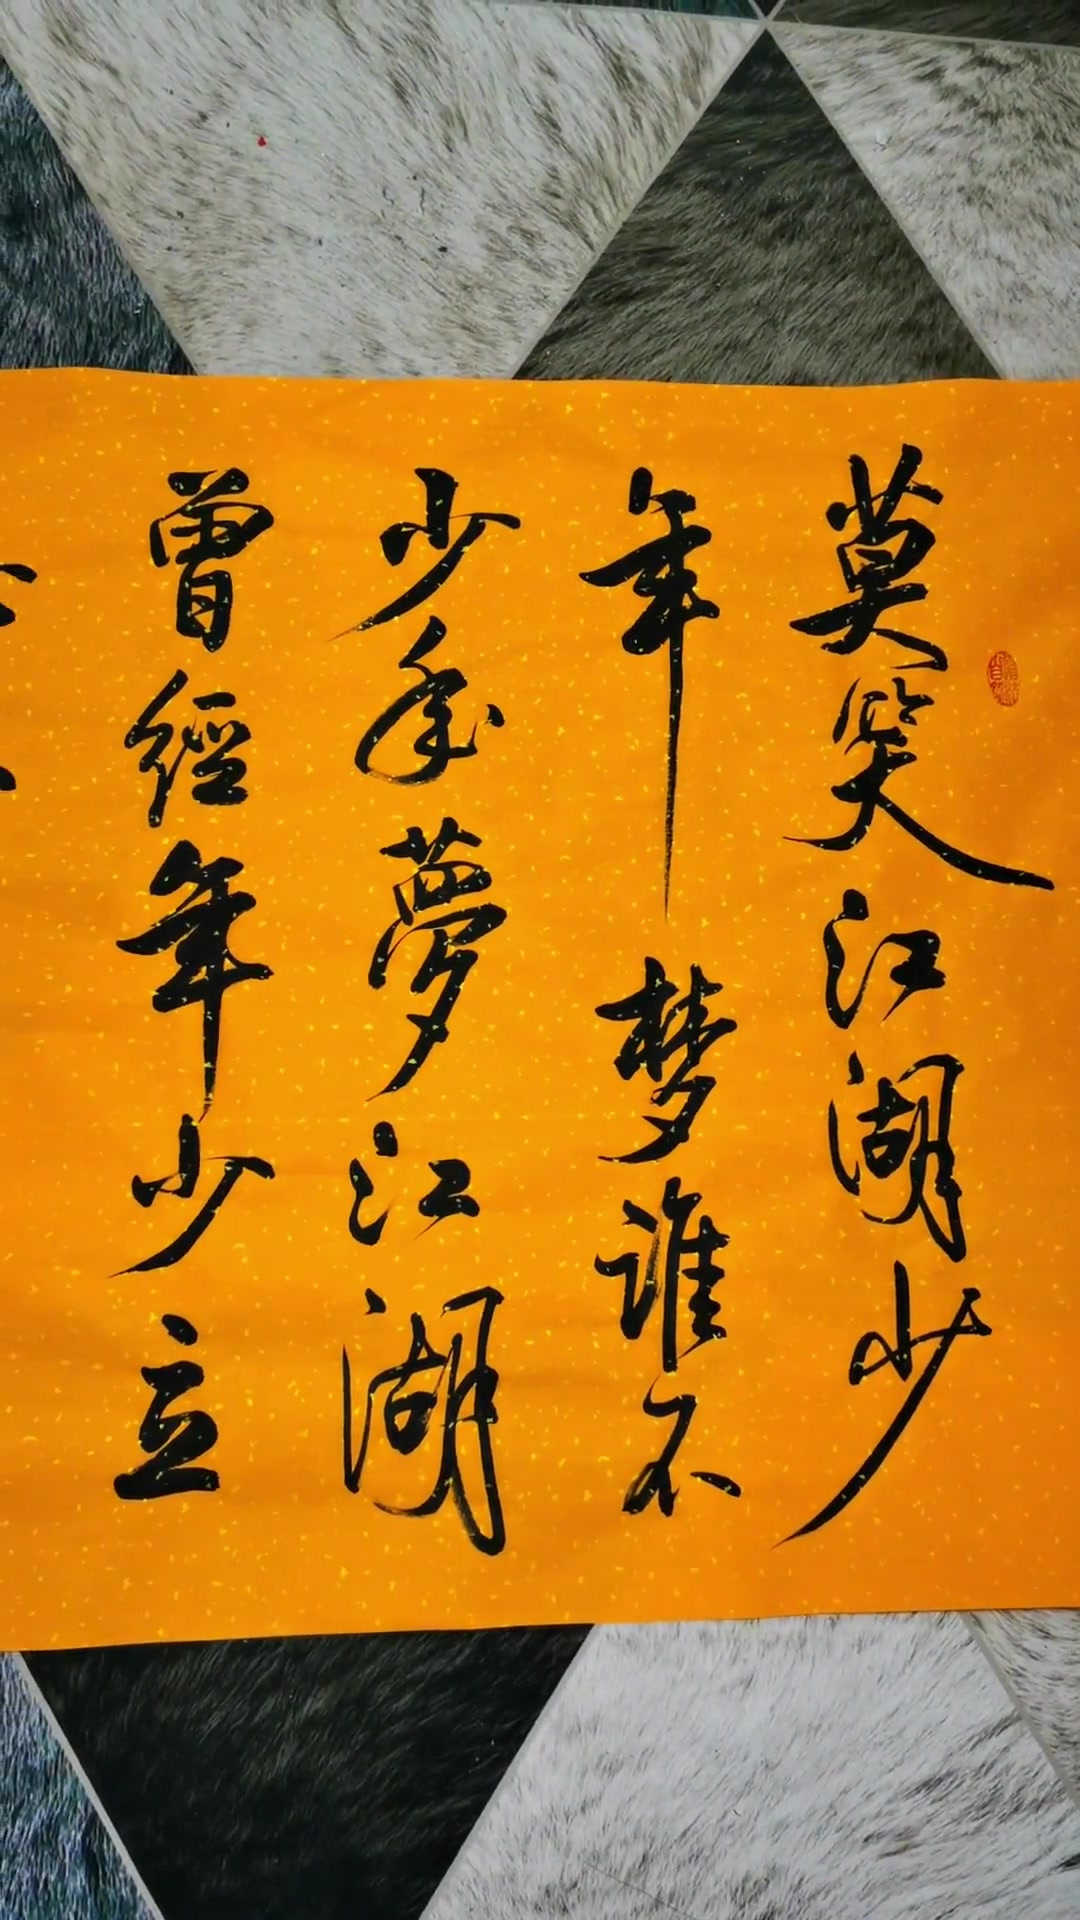 莫笑江湖少
年梦谁不
少年夢江湖
曾經年少立